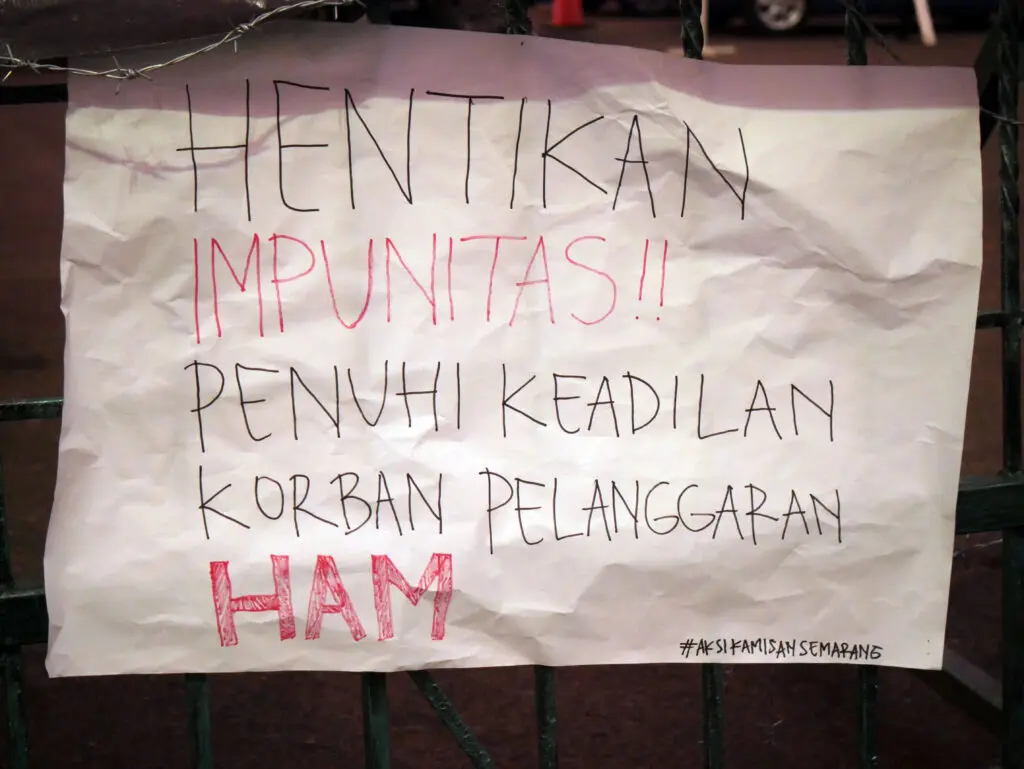 HENTIKAN
IMPUNITAS!!
PENUHI KEADILAN
KORBAN PELANGGARAN
HAM
#AKSIKAMISANSEMARANG